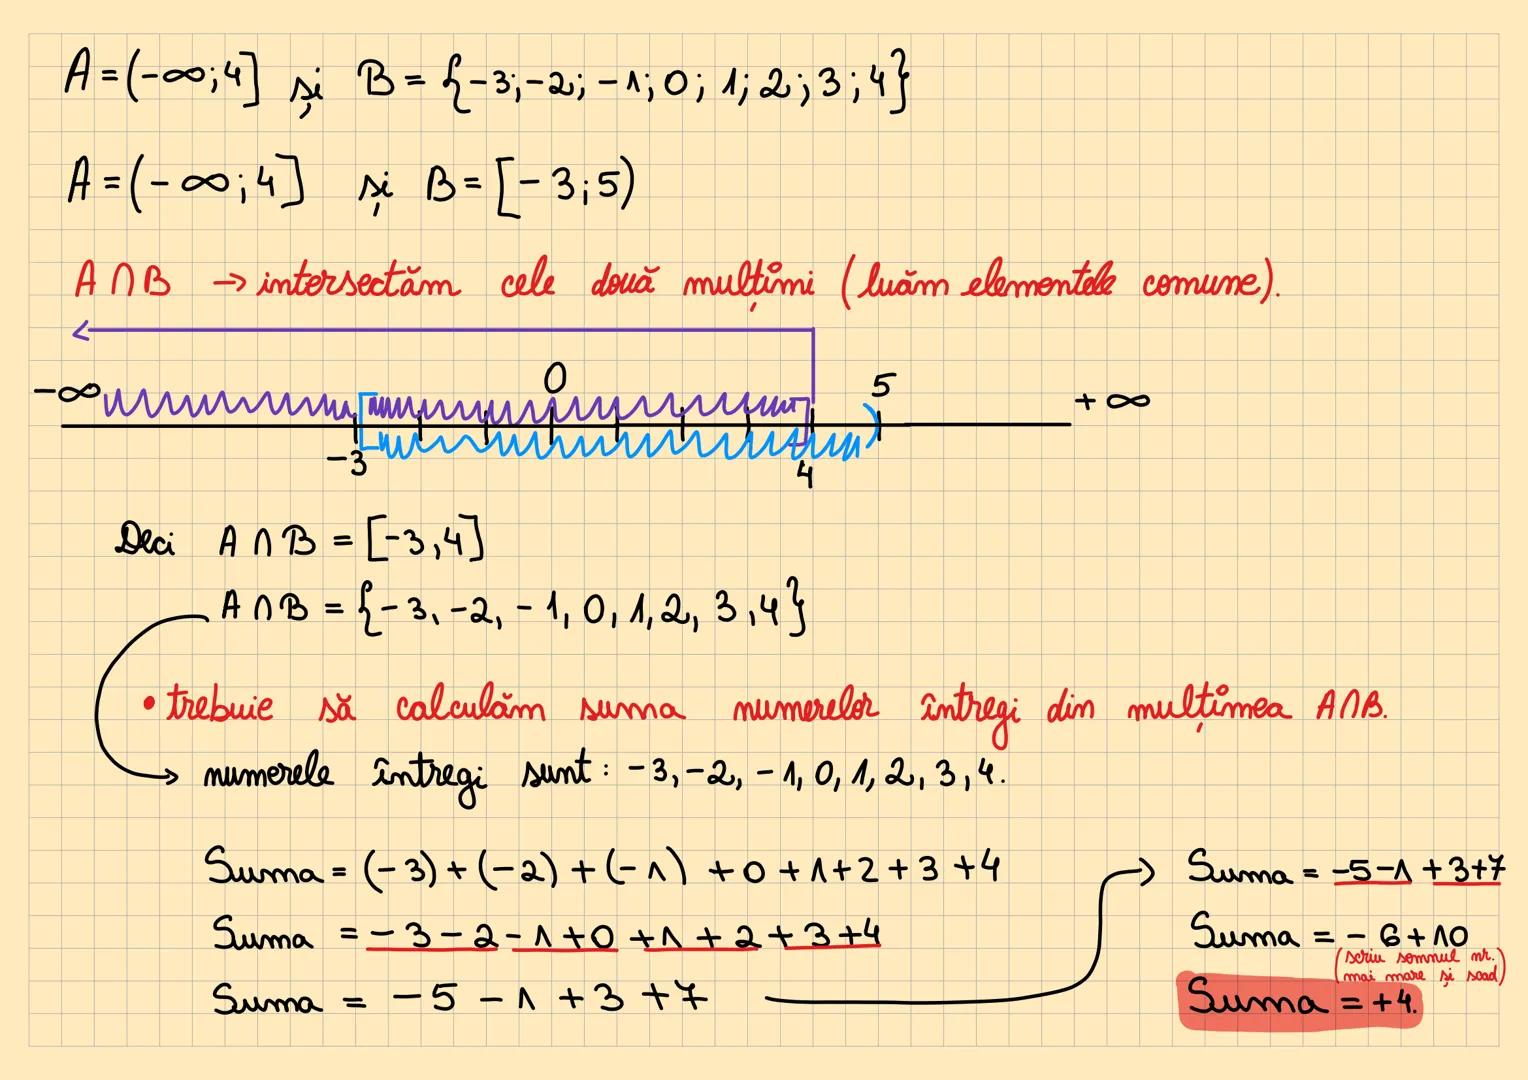 A = (-∞; 4] și B = {-3; -2; -1; 0; 1; 2; 3; 4}
A = (-∞; 4] și B = [-3; 5)
A ∩ B → intersectăm cele două mulțimi (luăm elementele comune).
-∞ 0 5 +∞
-3 4
Deci A ∩ B = [-3, 4]
A ∩ B = {-3, -2, -1, 0, 1, 2, 3, 4}
• trebuie să calculăm suma numerelor întregi din mulțimea A∩B.
→ numerele întregi sunt: -3, -2, -1, 0, 1, 2, 3, 4.
Suma = (-3) + (-2) + (-1) + 0 + 1 + 2 + 3 + 4
Suma = -3 - 2 - 1 + 0 + 1 + 2 + 3 + 4
Suma = -5 - 1 + 3 + 7
→ Suma = -5 - 1 + 3 + 7
Suma = -6 + 10
(scriu semnul nr.
mai mare și scad)
Suma = +4.